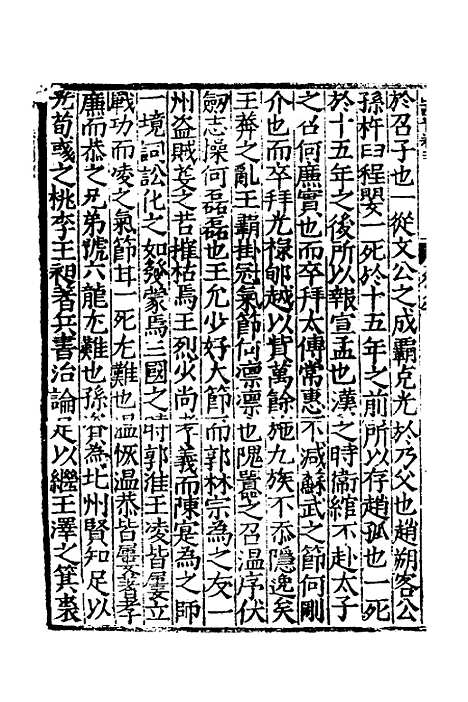 於召子也一從文公之成霸克光於乃父也趙朔客公
孫杵臼程嬰一死於十五年之前所以存趙孤也一死
於十五年之後所以報宣孟也漢之時衞綰不赴太子
之召何廉實也而卒拜太傅常惠不減蘇武之節何剛
介也而卒拜光祿郇越以貲萬餘施九族不忝隱逸矣
王莽之亂王霸掛冠氣節何凛凛也隗囂之召温序伏
劒志操何磊磊也王允少好大節而郭林宗為之友一
州盗賊芟之若摧枯焉王烈少尚孝義而陳寔為之師
一境詞訟化之如發蒙焉三國之時郭淮王凌皆屢立
戰功而凌之氣節耳一死尤難也温恢温恭皆屢孝
廉而恭之兄弟號六龍尤難也孫資為北州賢知足以
先荀彧之桃李王昶著兵書治論足以繼王澤之箕裘